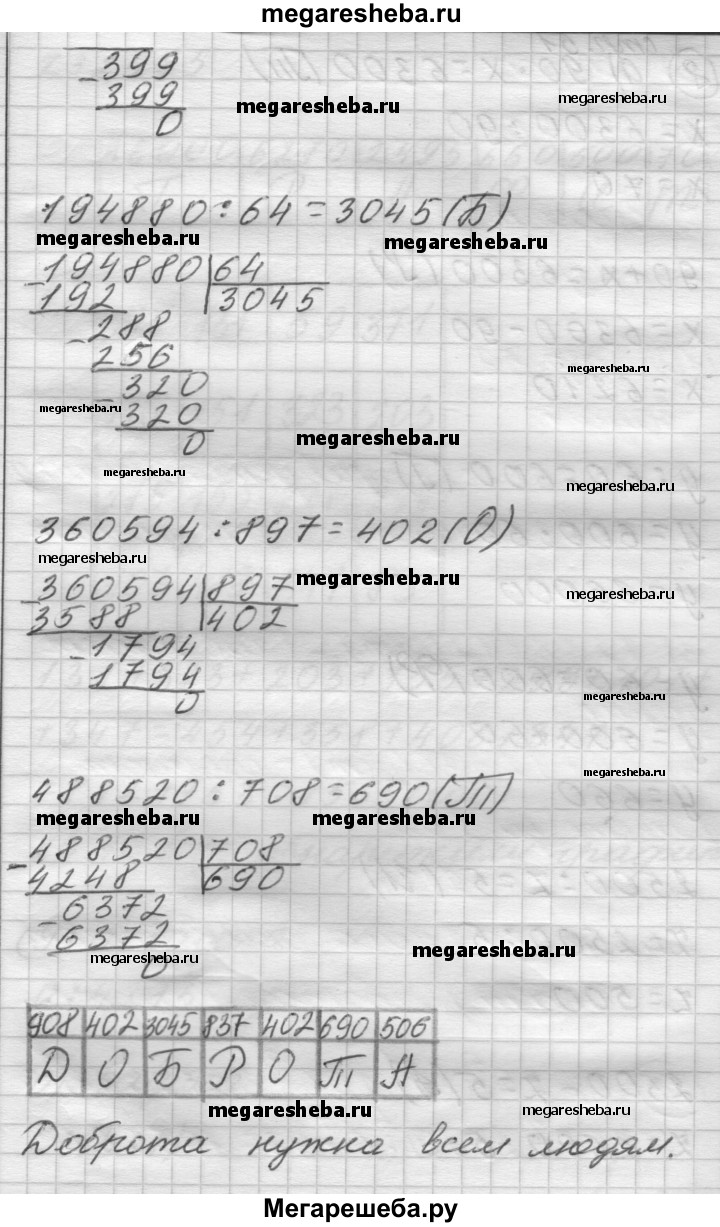 megaresheba.ru
399
- 399
megaresheba.ru megaresheba.ru
0
194880 : 64 = 3045 (Б)
megaresheba.ru megaresheba.ru
- 194880 | 64
192 3045
- 288
256 megaresheba.ru
- 320
megaresheba.ru 320 megaresheba.ru
0
megaresheba.ru megaresheba.ru
360594 : 897 = 402 (О)
megaresheba.ru megaresheba.ru
- 360594 | 897 megaresheba.ru
3588 402
- 1794
1794 megaresheba.ru
0
megaresheba.ru
488520 : 708 = 690 (Т)
megaresheba.ru megaresheba.ru
- 488520 | 708
4248 690
- 6372
6372 megaresheba.ru
megaresheba.ru 0
908 402 3045 837 402 690 506
Д О Б Р О Т А
megaresheba.ru megaresheba.ru
Доброта нужна всем людям.
Мегарешеба.ру